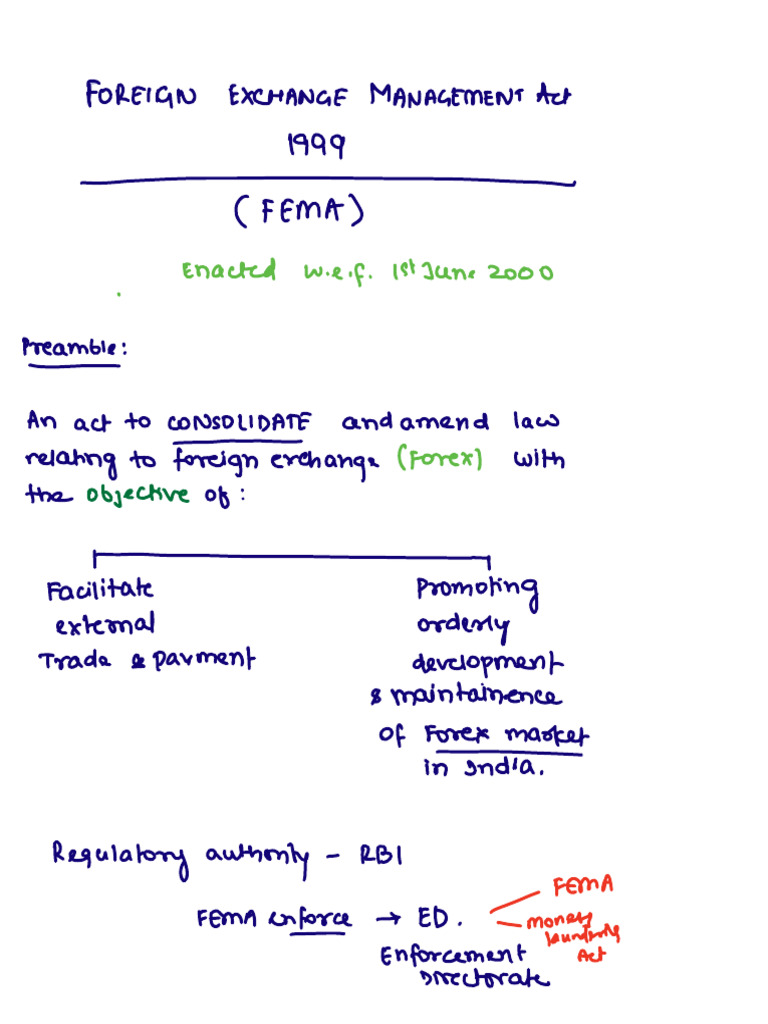 FOREIGN EXCHANGE MANAGEMENT Act
1999
(FEMA)
Enacted w.e.f. 1st June 2000
Preamble:
An act to CONSOLIDATE and amend law
relating to foreign exchange (Forex) with
the objective of:
Facilitate
external
Trade & payment
Promoting
orderly
development
& maintainence
of Forex market
in India.
Regulatory authority - RBI
FEMA enforce → ED.
Enforcement
Directorate
FEMA
money
laundring
Act